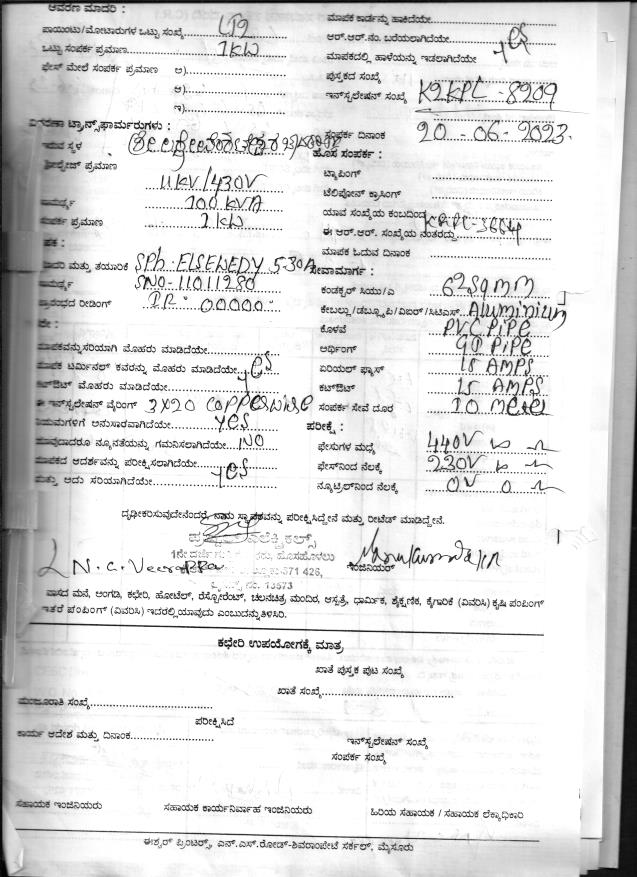 ಆವರಣ ಮಾದರಿ :
ಪಾಯಿಂಟು/ಮೋಟಾರುಗಳ ಒಟ್ಟು ಸಂಖ್ಯೆ
ಒಟ್ಟು ಸಂಪರ್ಕ ಪ್ರಮಾಣ 1KW
ಫೇಸ್ ಮೇಲೆ ಸಂಪರ್ಕ ಪ್ರಮಾಣ ಅ)
ಆ)
ಇ)
ಮಾಪಕ ಕಾರ್ಡನ್ನು ಹಾಕಿದೆಯೇ
ಆರ್.ಆರ್.ನಂ. ಬರೆಯಲಾಗಿದೆಯೇ
ಮಾಪಕದಲ್ಲಿ ಹಾಳೆಯನ್ನು ಇಡಲಾಗಿದೆಯೇ yes
ಪುಸ್ತಕದ ಸಂಖ್ಯೆ
ಇನ್‌ಸ್ಟಲೇಷನ್ ಸಂಖ್ಯೆ K2KPL-8209
ಸಂಪರ್ಕ ದಿನಾಂಕ 20-06-2023
ಟ್ರಾನ್ಸ್‌ಫಾರ್ಮರುಗಳು :
ಇರುವ ಸ್ಥಳ
ಪ್ರಮಾಣ 11KV/430V
100 KVA
ಸಂಪರ್ಕ ಪ್ರಮಾಣ 1KW
ಹೊಸ ಸಂಪರ್ಕ :
ಟ್ಯಾಪಿಂಗ್
ಟೆಲಿಫೋನ್ ಕ್ರಾಸಿಂಗ್
ಯಾವ ಸಂಖ್ಯೆಯ ಕಂಬದಿಂದ
ಈ ಆರ್.ಆರ್. ಸಂಖ್ಯೆಯ ನಂತರದ್ದು
ಮಾಪಕ ಓದುವ ದಿನಾಂಕ
ಮತ್ತು ತಯಾರಿಕೆ SPh. ELSEWEDY 5-30A
SNO-11011280
ರೀಡಿಂಗ್ IR 00000
ಸೇವಾಮಾರ್ಗ :
ಕಂಡಕ್ಟರ್ ಸಿಯು/ಎ 6 2sqmm
ಕೇಬಲ್ಲು/ಡಬ್ಲ್ಯೂಪಿ/ವಿಐಆರ್/ಸಿಟಿಎಸ್ Aluminium
ಕೊಳವೆ PVC PiPE
ಅರ್ಥಿಂಗ್ GI PiPE
ಏರಿಯಲ್ ಫ್ಯೂಸ್ 15 AMPS
ಕಟ್‌ಔಟ್ 15 AMPS
ಸಂಪರ್ಕ ಸೇವೆ ದೂರ 10 meter
ಮಾಪಕವನ್ನುಸರಿಯಾಗಿ ಮೊಹರು ಮಾಡಿದೆಯೇ
ಮಾಪಕ ಟರ್ಮಿನಲ್ ಕವರನ್ನು ಮೊಹರು ಮಾಡಿದೆಯೇ yes
ಕಟ್‌ಔಟ್ ಮೊಹರು ಮಾಡಿದೆಯೇ
ಈ ಇನ್‌ಸ್ಟಲೇಷನ್ ವೈರಿಂಗ್ 3X20
ನಿಯಮಗಳಿಗೆ ಅನುಸಾರವಾಗಿದೆಯೇ yes
ಯಾವುದಾದರೂ ನ್ಯೂನತೆಯನ್ನು ಗಮನಿಸಲಾಗಿದೆಯೇ NO
ಮಾಪಕದ ಆದರ್ಶವನ್ನು ಪರೀಕ್ಷಿಸಲಾಗಿದೆಯೇ
ಮತ್ತು ಅದು ಸರಿಯಾಗಿದೆಯೇ yes
ಪರೀಕ್ಷೆ :
ಫೇಸುಗಳ ಮಧ್ಯೆ 440V
ಫೇಸ್‌ನಿಂದ ನೆಲಕ್ಕೆ 230V
ನ್ಯೂಟ್ರಲ್‌ನಿಂದ ನೆಲಕ್ಕೆ 0V 0
ದೃಢೀಕರಿಸುವುದೇನೆಂದರೆ, ನಾನು ಸ್ಥಾಪಕವನ್ನು ಪರೀಕ್ಷಿಸಿದ್ದೇನೆ ಮತ್ತು ರೀಟೆಡ್ ಮಾಡಿದ್ದೇನೆ.
ಎಲೆಕ್ಟ್ರಿಕಲ್ಸ್
ಹೊಸಹೊಳಲು
571 426,
N. C. Veerappa
ಇಂಜಿನಿಯರ್
ವಾಸದ ಮನೆ, ಅಂಗಡಿ, ಕಛೇರಿ, ಹೋಟೆಲ್, ರೆಸ್ಟೋರೆಂಟ್, ಚಲನಚಿತ್ರ ಮಂದಿರ, ಆಸ್ಪತ್ರೆ, ಧಾರ್ಮಿಕ, ಶೈಕ್ಷಣಿಕ, ಕೈಗಾರಿಕೆ (ವಿವರಿಸಿ) ಕೃಷಿ ಪಂಪಿಂಗ್
ಇತರೆ ಪಂಪಿಂಗ್ (ವಿವರಿಸಿ) ಇದರಲ್ಲಿಯಾವುದು ಎಂಬುದನ್ನುತಿಳಿಸಿರಿ.
ಕಛೇರಿ ಉಪಯೋಗಕ್ಕೆ ಮಾತ್ರ
ಖಾತೆ ಪುಸ್ತಕ ಪುಟ ಸಂಖ್ಯೆ
ಖಾತೆ ಸಂಖ್ಯೆ
ಮಂಜೂರಾತಿ ಸಂಖ್ಯೆ
ಪರೀಕ್ಷಿಸಿದೆ
ಕಾರ್ಯ ಆದೇಶ ಮತ್ತು ದಿನಾಂಕ
ಇನ್‌ಸ್ಟಲೇಷನ್ ಸಂಖ್ಯೆ
ಸಂಪರ್ಕ ಸಂಖ್ಯೆ
ಸಹಾಯಕ ಇಂಜಿನಿಯರು
ಸಹಾಯಕ ಕಾರ್ಯನಿರ್ವಾಹ ಇಂಜಿನಿಯರು
ಹಿರಿಯ ಸಹಾಯಕ / ಸಹಾಯಕ ಲೆಕ್ಕಾಧಿಕಾರಿ
ಈಶ್ವರ್ ಪ್ರಿಂಟರ್ಸ್, ಎನ್.ಎಸ್.ರೋಡ್-ಶಿವರಾಂಪೇಟೆ ಸರ್ಕಲ್, ಮೈಸೂರು